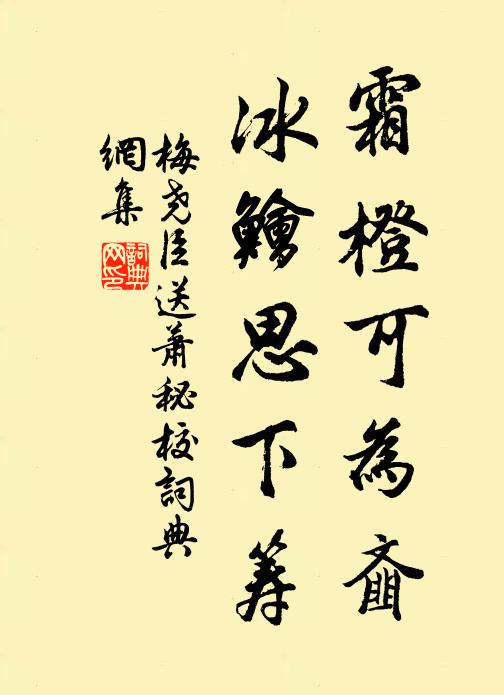 霜橙可為齑
冰鱠思下筹
梅尧臣送蕭秘校詞典
網集
詞典
网印